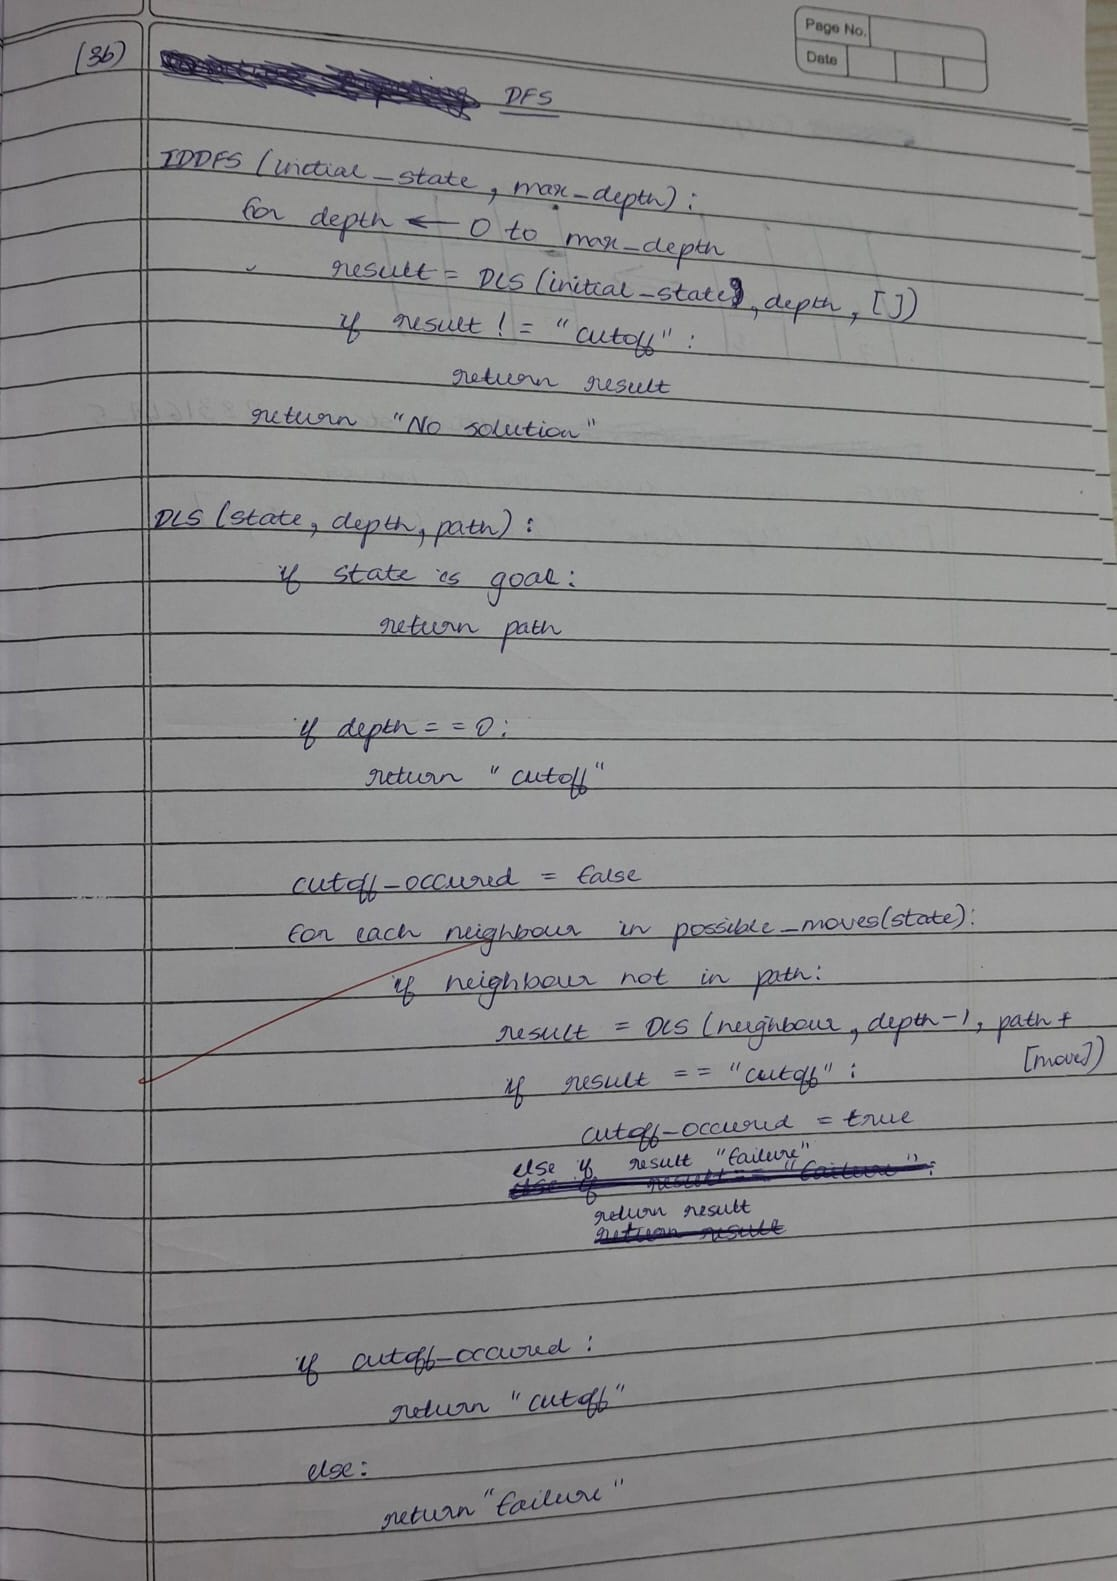 Page No.
Date
(3b)
DFS
IDDFS (initial_state, max_depth):
for depth ← 0 to max_depth
result = DLS (initial_state, depth, [])
if result != "cutoff":
return result
return "No solution"
DLS (state, depth, path):
if state is goal:
return path
if depth == 0:
return "cutoff"
cutoff_occured = false
for each neighbour in possible_moves(state):
if neighbour not in path:
result = DLS (neighbour, depth-1, path +
[move])
if result == "cutoff":
cutoff_occured = true
else if result "failure"
else if result == "failure":
return result
return result
if cutoff_occured:
return "cutoff"
else:
return "failure"